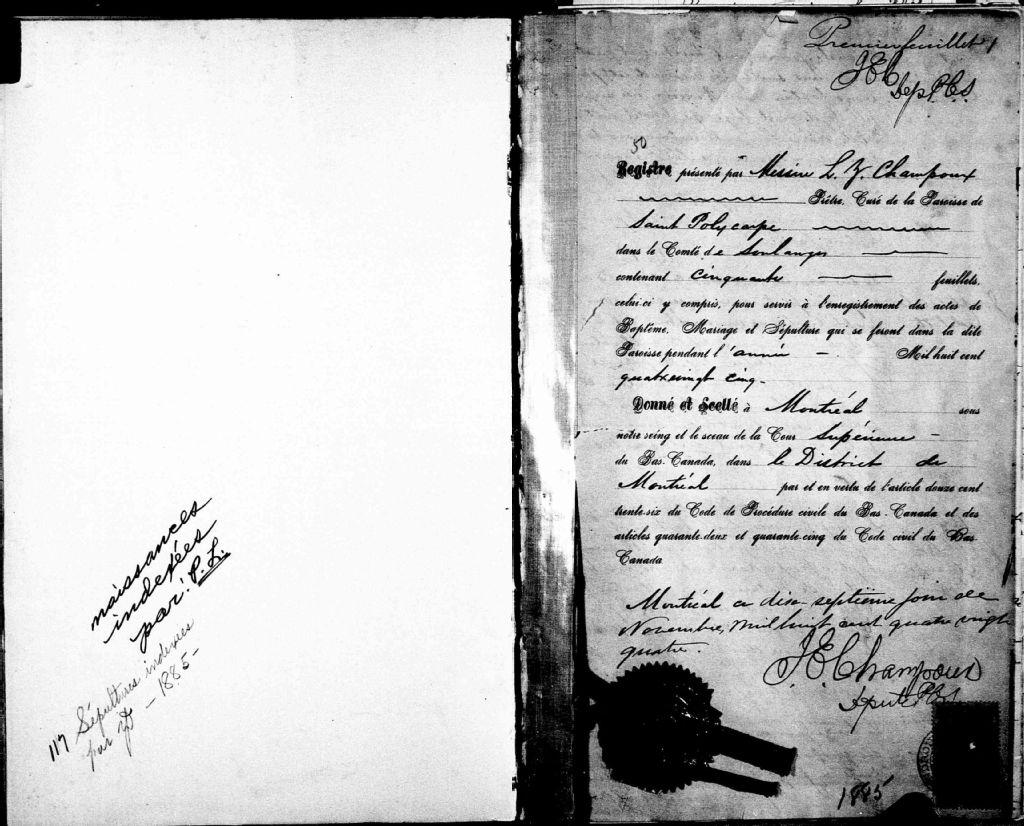 naissances
indexées
par: P. L.
117 Sépultures indexées
par
— 1885 —
Premier feuillet /
Dep P.C.S.
50
Registre présenté par Messire L. Z. Champoux
Prêtre, Curé de la Paroisse de
Saint Polycarpe
dans le Comté de Soulanges
contenant Cinquante feuillets,
celui-ci y compris, pour servir à l'enregistrement des actes de
Baptême, Mariage et Sépulture qui se feront dans la dite
Paroisse pendant l'année — . Mil huit cent
quatrevingt cinq.
Donné et Scellé à Montréal sous
notre seing et le sceau de la Cour Supérieure —
du Bas-Canada, dans le District de
Montréal par et en vertu de l'article douze cent
trente-six du Code de Procédure civile du Bas-Canada et des
articles quarante-deux et quarante-cinq du Code civil du Bas-
Canada
Montréal ce dix-septième jour de
Novembre, Mil huit cent quatre vingt
quatre.
J. E. Champoux
Député P.C.S.
1885